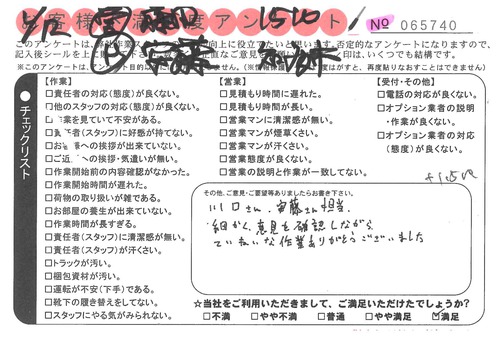 客様満足度アンケート
4/12
1510
No 065740
このアンケートは、弊社作業スタッフの向上に役立てたいと思います。否定的なアンケートになりますので、
記入後シールを上に
印は、いくつでも結構です。
チェックリスト
【作業】
□責任者の対応(態度)が良くない。
□他のスタッフの対応(態度)が良くない。
業を見ていて不安がある。
者(スタッフ)に好感が持てない。
への挨拶が出来ていない。
への挨拶・気遣いが無い。
□作業開始前の内容確認がなかった。
□作業開始時間が遅れた。
□荷物の取り扱いが雑である。
□お部屋の養生が出来ていない。
□作業時間が長すぎる。
□責任者(スタッフ)に清潔感が無い。
□責任者(スタッフ)が汗くさい。
□トラックが汚い。
□梱包資材が汚い。
□運転が不安(下手)である。
□靴下の履き替えをしてない。
□スタッフにやる気がみられない。
【営業】
□見積もり時間に遅れた。
□見積もり時間が長い。
□営業マンに清潔感が無い。
□営業マンが煙草くさい。
□営業マンが汗くさい。
□営業態度が良くない。
□営業の説明と作業が一致してない。
【受付・その他】
□電話の対応が良くない。
□オプション業者の説明
・作業が良くない。
□オプション業者の対応
(態度)が良くない。
その他、ご意見・ご要望等ありましたらお書き下さい。
川口さん、安藤さん担当、
細かく意見を確認しながら
ていねいな作業ありがとうございました
☆当社をご利用いただきまして、ご満足いただけたでしょうか?
□不満 □やや不満 □普通 □やや満足 ☑満足